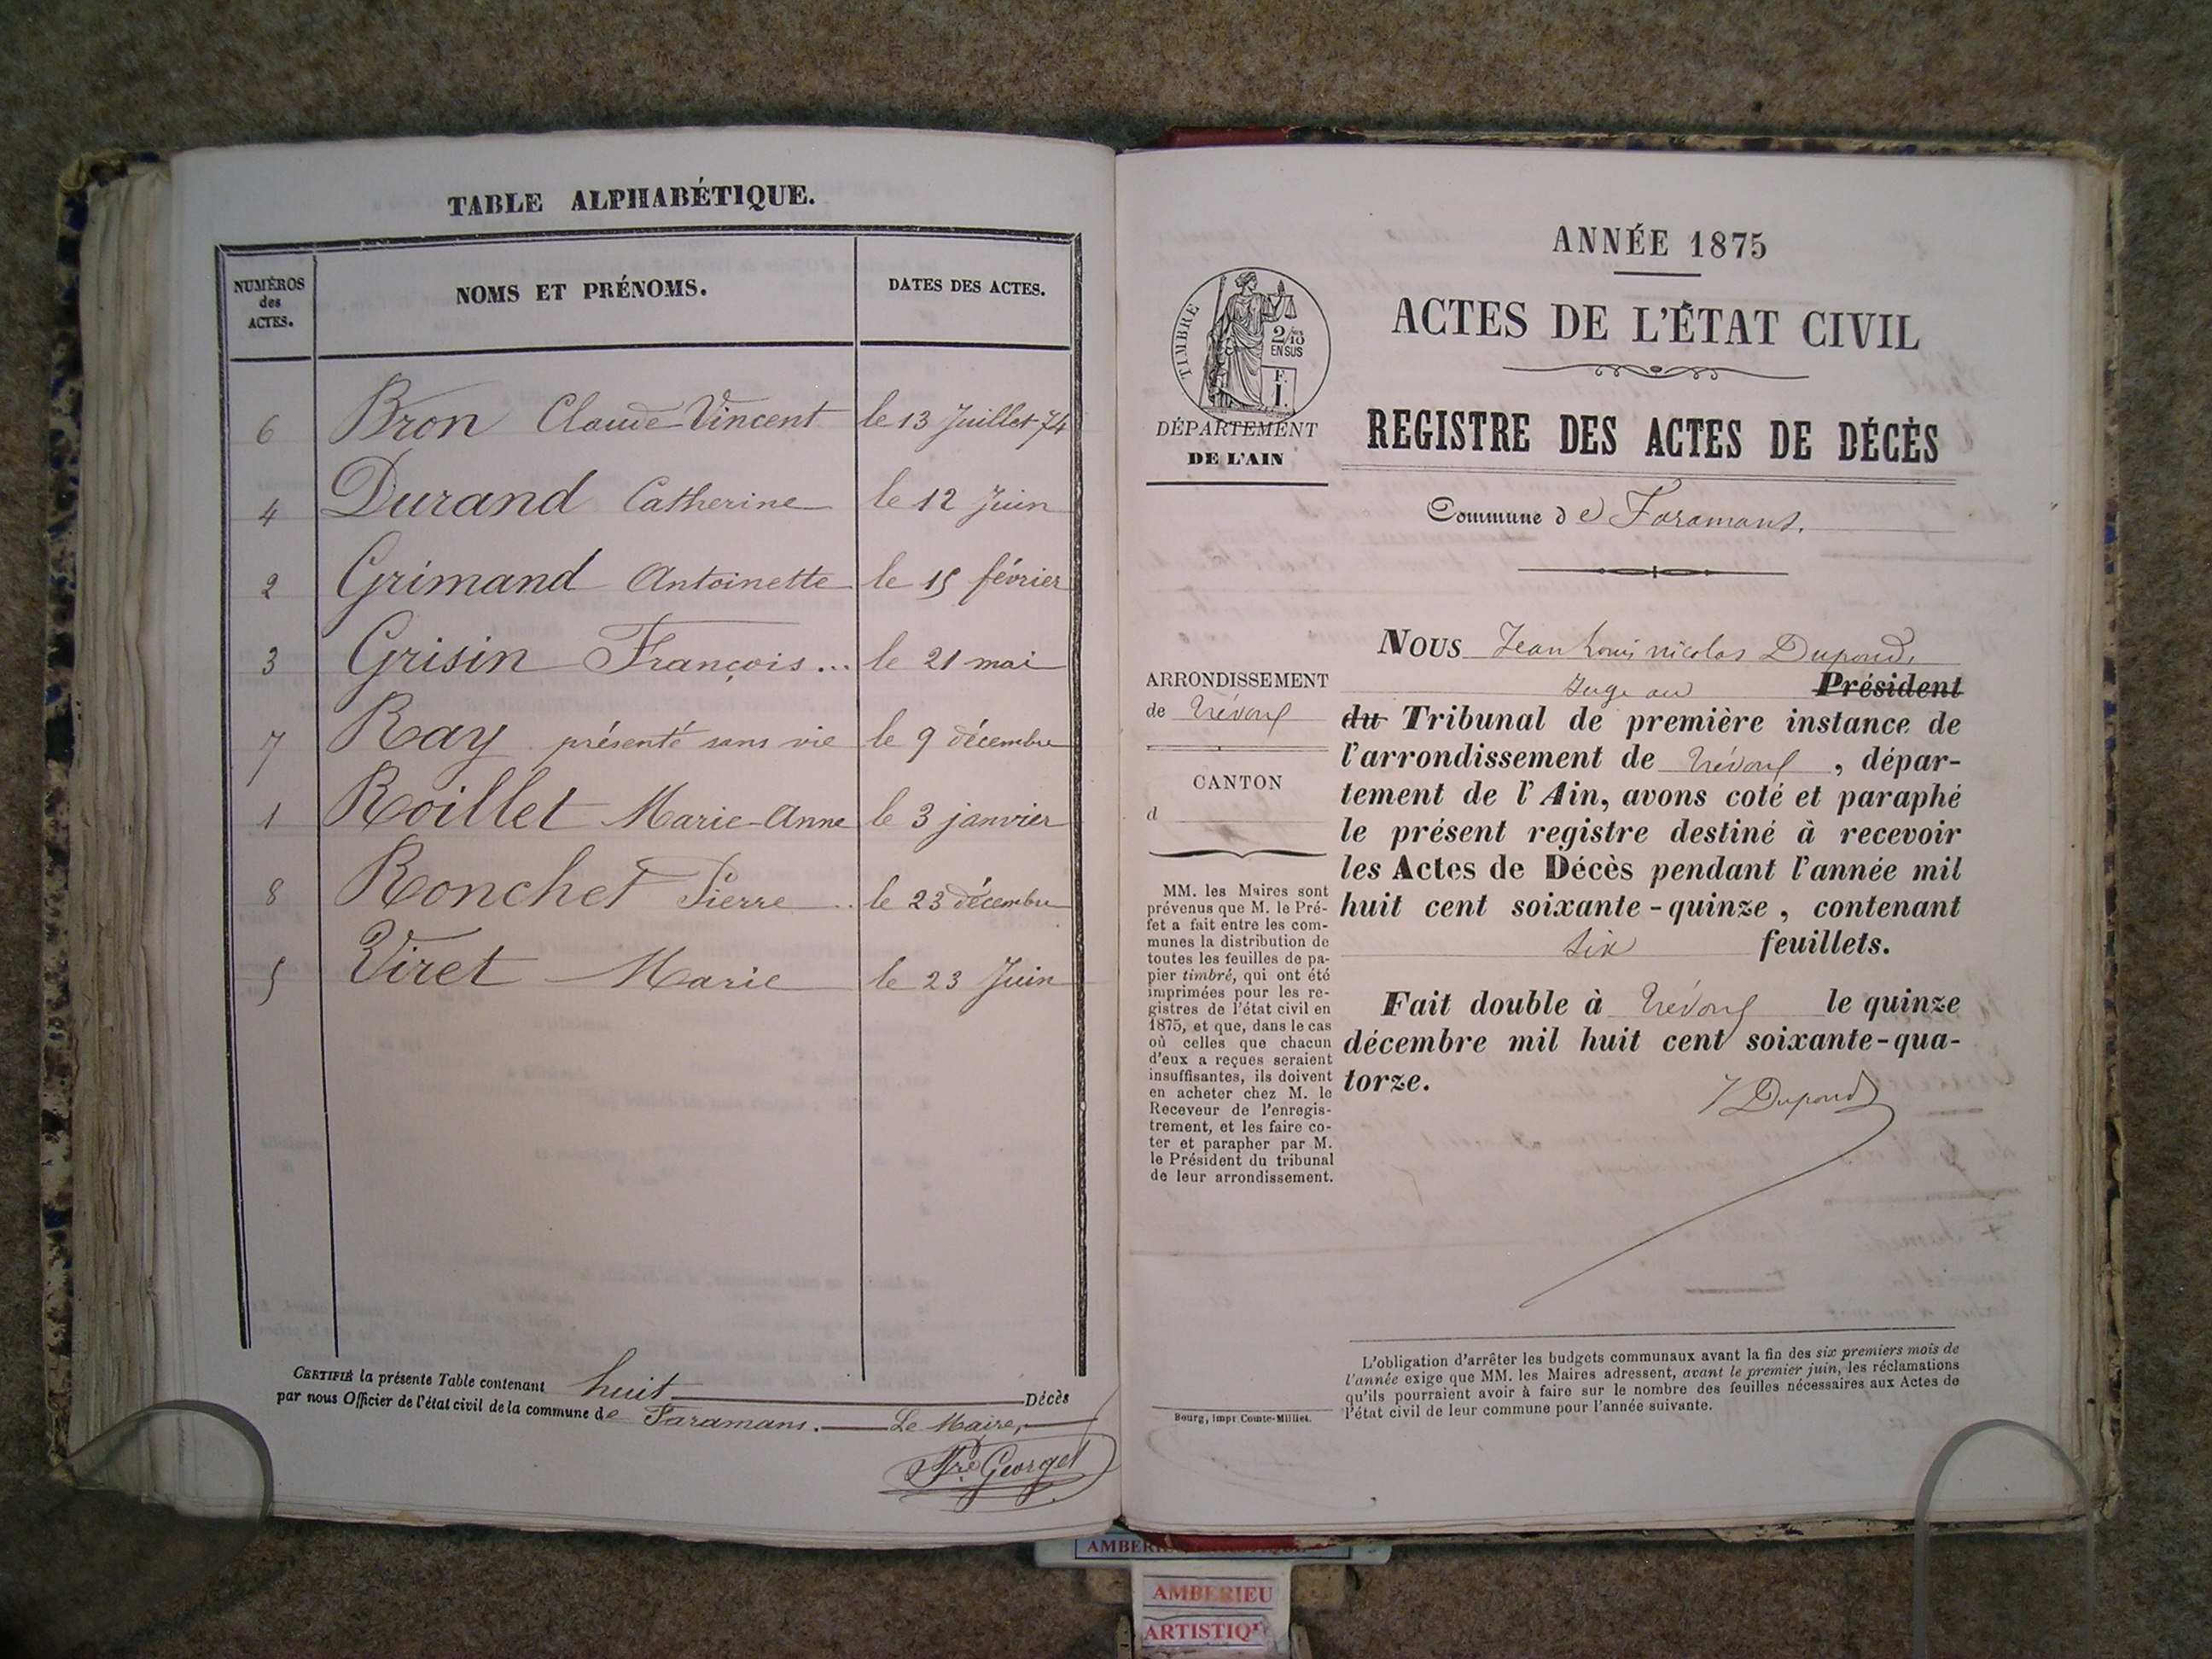 TABLE ALPHABÉTIQUE.
NUMÉROS des ACTES.
NOMS ET PRÉNOMS.
DATES DES ACTES.
6 Bron Claude-Vincent le 13 Juillet 74
4 Durand Catherine le 12 Juin
2 Grimand Antoinette le 15 février
3 Grisin François... le 21 mai
7 Ray présenté sans vie le 9 décembre
1 Roillet Marie-Anne le 3 janvier
8 Ronchet Pierre le 23 décembre
5 Viret Marie le 23 Juin
CERTIFIÉ la présente Table contenant huit Décès
par nous Officier de l'état civil de la commune de Faramans. Le Maire,
Georgel
ANNÉE 1875
ACTES DE L'ÉTAT CIVIL
REGISTRE DES ACTES DE DÉCÈS
TIMBRE
2/10 EN SUS
F. 1.
DÉPARTEMENT
DE L'AIN
Commune de Faramans.
ARRONDISSEMENT
de Trévoux
CANTON
d
MM. les Maires sont
prévenus que M. le Pré-
fet a fait entre les com-
munes la distribution de
toutes les feuilles de pa-
pier timbré, qui ont été
imprimées pour les re-
gistres de l'état civil en
1875, et que, dans le cas
où celles que chacun
d'eux a reçues seraient
insuffisantes, ils doivent
en acheter chez M. le
Receveur de l'enregis-
trement, et les faire co-
ter et parapher par M.
le Président du tribunal
de leur arrondissement.
Bourg, impr Comte-Milliet.
NOUS Jean Louis nicolas Dupond,
Juge au Président
du Tribunal de première instance de
l'arrondissement de Trévoux, dépar-
tement de l'Ain, avons coté et paraphé
le présent registre destiné à recevoir
les Actes de Décès pendant l'année mil
huit cent soixante-quinze, contenant
six feuillets.
Fait double à Trévoux le quinze
décembre mil huit cent soixante-qua-
torze.
Dupond
L'obligation d'arrêter les budgets communaux avant la fin des six premiers mois de
l'année exige que MM. les Maires adressent, avant le premier juin, les réclamations
qu'ils pourraient avoir à faire sur le nombre des feuilles nécessaires aux Actes de
l'état civil de leur commune pour l'année suivante.
AMBERIEU
ARTISTIQ